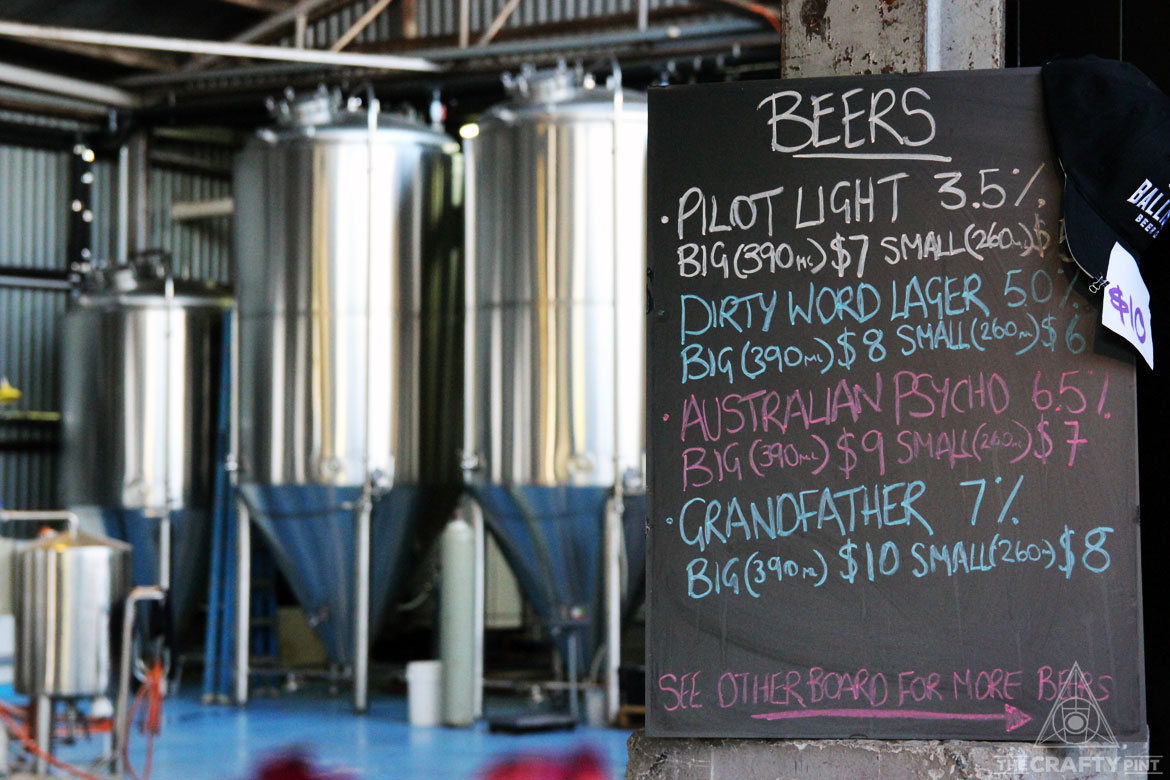 BEERS
• PILOT LIGHT 3.5%
BIG (390ML) $7 SMALL (260ML) $
DIRTY WORD LAGER 5.0%
BIG (390ML) $8 SMALL (260ML) $6
• AUSTRALIAN PSYCHO 6.5%
BIG (390ML) $9 SMALL (260ML) $7
• GRANDFATHER 7%
BIG (390ML) $10 SMALL (260ML) $8
SEE OTHER BOARD FOR MORE BEERS
BALL
BEER
$10
THE CRAFTY PINT